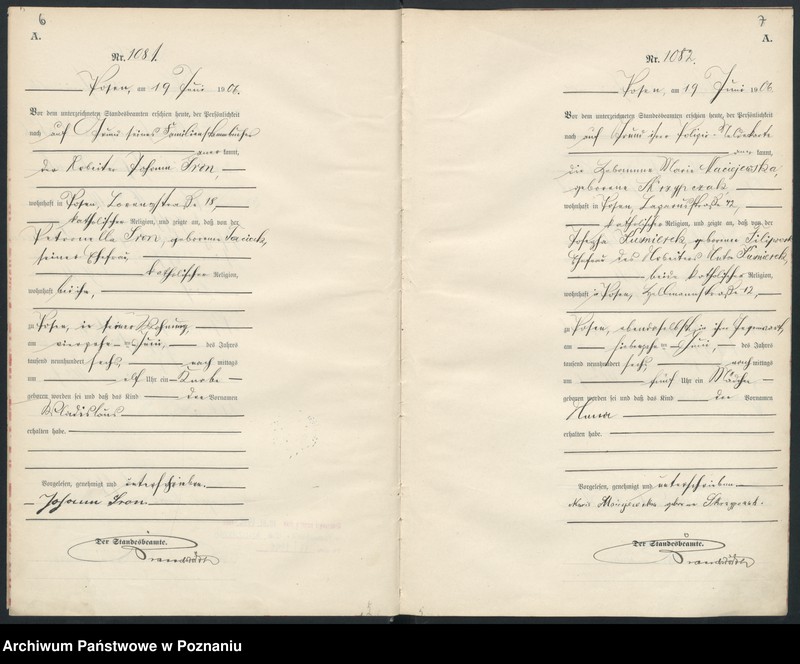 6
A.
Nr. 1081.
Posen, am 19 Juni 1906.
Vor dem unterzeichneten Standesbeamten erschien heute, der Persönlichkeit
nach auf Grund seines Familienstammbuches
kannt,
der Arbeiter Johann Sron,
wohnhaft in Posen, 18,
katholischer Religion, und zeigte an, daß von der
Petronella Sron, geborene
seiner Ehefrau
katholischer Religion,
wohnhaft bei ihm,
zu Posen, in seiner Wohnung,
am Juni, des Jahres
tausend neunhundert sechs, nach mittags
um elf Uhr ein Knabe
geboren worden sei und daß das Kind den Vornamen
Wladislaus
erhalten habe.
Vorgelesen, genehmigt und unterschrieben.
Johann Sron
Der Standesbeamte.
7
A.
Nr. 1082.
Posen, am 19 Juni 1906
Vor dem unterzeichneten Standesbeamten erschien heute, der Persönlichkeit
nach auf Grund ihrer Polizei-
kannt,
die Hebamme Marie Maciejewska,
geborene Skrzypczak,
wohnhaft in Posen,
katholischer Religion, und zeigte an, daß von der
Josepha Kusmierek, geborene
Ehefrau des Arbeiters Kusmierek,
beide katholischer Religion,
wohnhaft in Posen, 12,
zu Posen, ebendaselbst, in ihrer Gegenwart,
am siebzehnten Juni, des Jahres
tausend neunhundert sechs nach mittags
um fünf Uhr ein Mädchen
geboren worden sei und daß das Kind den Vornamen
Anna
erhalten habe.
Vorgelesen, genehmigt und unterschrieben
geborene
Der Standesbeamte.
Archiwum Państwowe w Poznaniu